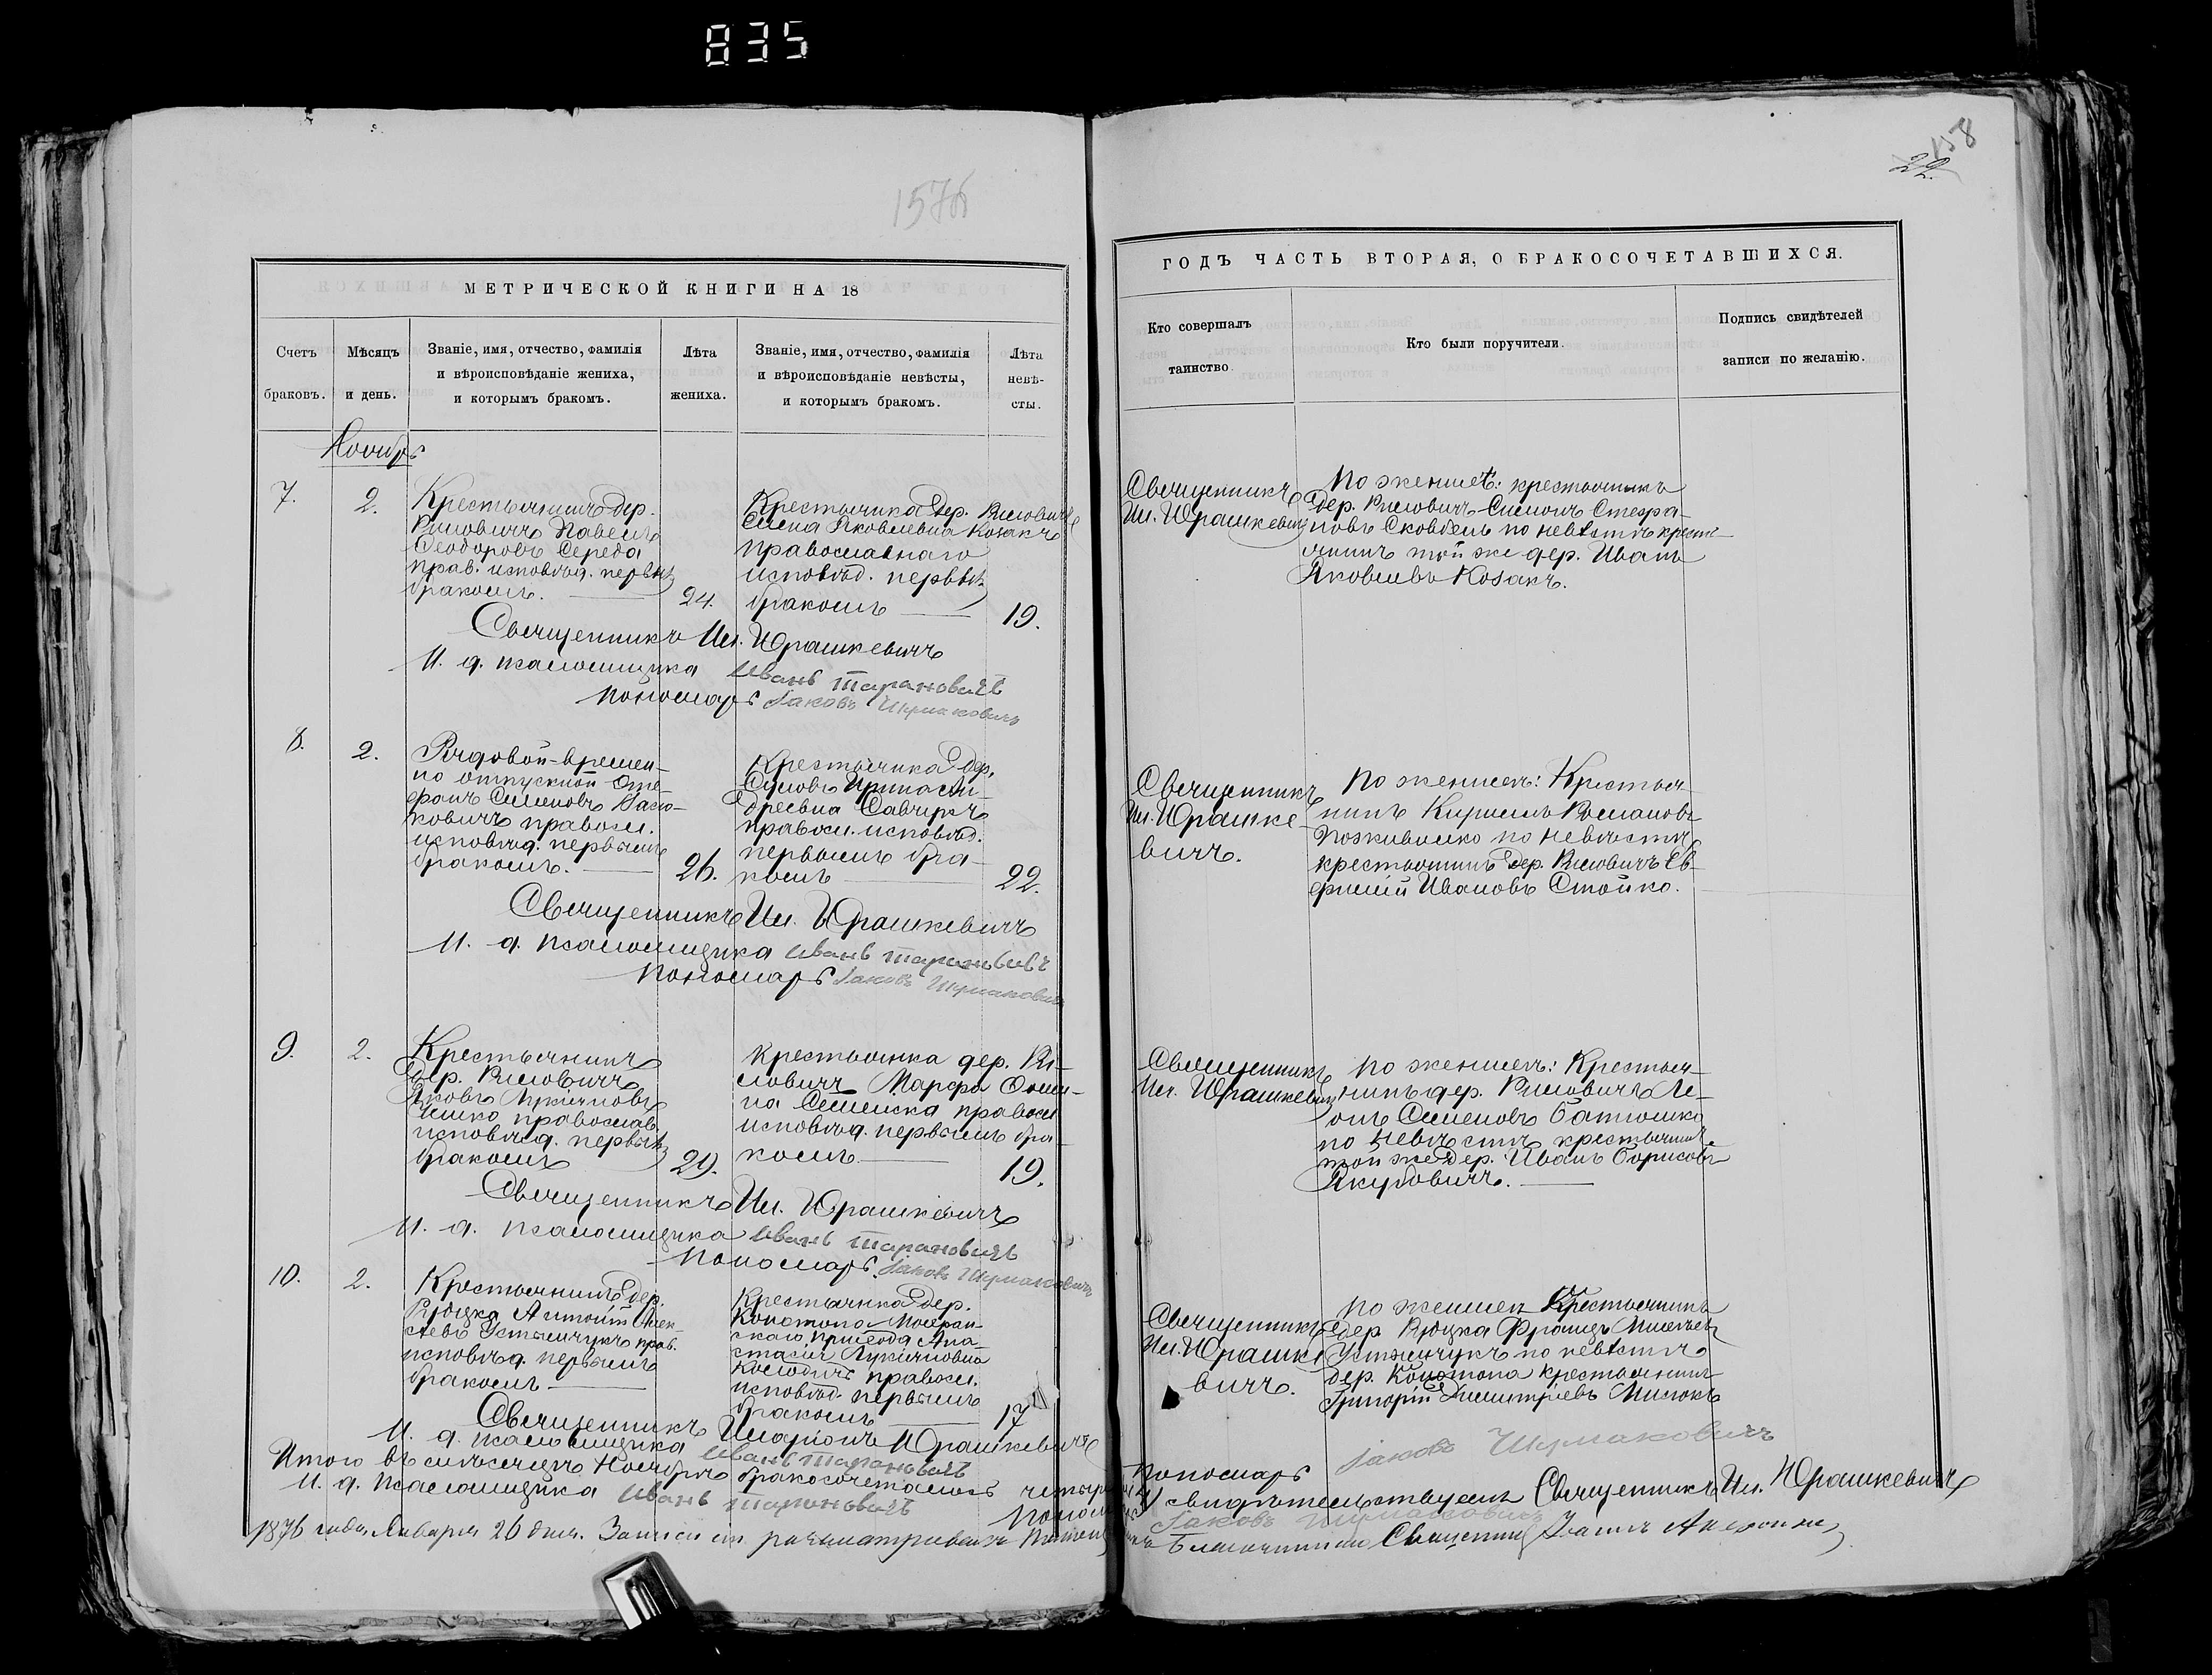 835
158
22
157б
МЕТРИЧЕСКОЙ КНИГИ НА 18
ГОДЪ ЧАСТЬ ВТОРАЯ, О БРАКОСОЧЕТАВШИХСЯ.
Счетъ браковъ.
Мѣсяцъ и день.
Званіе, имя, отчество, фамилія
и вѣроисповѣданіе жениха,
и которымъ бракомъ.
Лѣта жениха.
Званіе, имя, отчество, фамилія
и вѣроисповѣданіе невѣсты,
и которымъ бракомъ.
Лѣта невѣ-
сты.
Кто совершалъ
таинство.
Кто были поручители.
Подпись свидѣтелей
записи по желанію.
Ноябрь
7.
2.
Крестьянинъ дер.
Павелъ
Ѳеодоровъ Середа
прав. исповѣд. первымъ
бракомъ.
24.
Крестьянка дер.
Елена Яковлевна Козакъ
православнаго
исповѣд. первымъ
бракомъ
19.
Священникъ
Ил. Юрашкевичъ
По женихѣ: крестьянинъ
дер. Симонъ Стефа-
новъ по невѣстѣ крестья-
нинъ той же дер. Иванъ
Яковлевъ Козакъ.
Священникъ Ил. Юрашкевичъ
И. д. псаломщика Иванъ Тарановичъ
Пономарь Іаковъ Шумаковичъ
8.
2.
Рядовой-времен-
но отпускной Сте-
фанъ Семеновъ
правосл.
исповѣд. первымъ
бракомъ.
26.
Крестьянка дер.
Ирина Ан-
дреевна Савчукъ
правосл. исповѣд.
первымъ бра-
комъ
22.
Священникъ
Ил. Юрашке-
вичъ.
По женихѣ: Крестья-
нинъ Кириллъ Романовъ
по невѣстѣ
крестьянинъ дер. Ев-
фимій Ивановъ Стойко.
Священникъ Ил. Юрашкевичъ
И. д. псаломщика Иванъ Тарановичъ
Пономарь Іаковъ Шумаковичъ
9.
2.
Крестьянинъ
дер.
Яковъ Лукіановъ
православ.
исповѣд. первымъ
бракомъ
29.
Крестьянка дер.
Марфа
правосл.
исповѣд. первымъ бра-
комъ
19.
Священникъ
Ил. Юрашкевичъ
По женихѣ: Крестья-
нинъ дер. Ле-
онъ Семеновъ Батюшко
по невѣстѣ крестьянинъ
той же дер. Иванъ Борисовъ
Якубовичъ.
Священникъ Ил. Юрашкевичъ
И. д. псаломщика Иванъ Тарановичъ
Пономарь Іаковъ Шумаковичъ
10.
2.
Крестьянинъ дер.
Антоній Алек-
сѣевъ прав.
исповѣд. первымъ
бракомъ
Крестьянка дер.
Конотопа
прихода Ана-
стасія Лукіановна
правосл.
исповѣд. первымъ
бракомъ
17
Священникъ
Ил. Юрашке
вичъ.
По женихѣ Крестьянинъ
дер.
по невѣстѣ
дер. Конотопа крестьянинъ
Григорій Димитріевъ
Священникъ Иларіонъ Юрашкевичъ
И. д. псаломщика Иванъ Тарановичъ
Пономарь Іаковъ Шумаковичъ
Итого въ мѣсяцѣ Ноябрѣ бракосочеталось четыре
свидѣтельствуемъ Священникъ Ил. Юрашкевичъ
И. д. псаломщика Иванъ Тарановичъ
Іаковъ Шумаковичъ
1876 года Января 26 дня. Записи сіи разсматривалъ
Благочинный Священникъ